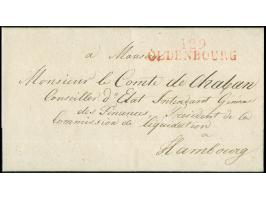 129
OLDENBOURG
a Monsieur
Monsieur le Comte de Chaban
Conseiller d'Etat Intendant General
des Finances President de la
Commission de liquidation
a
Hambourg